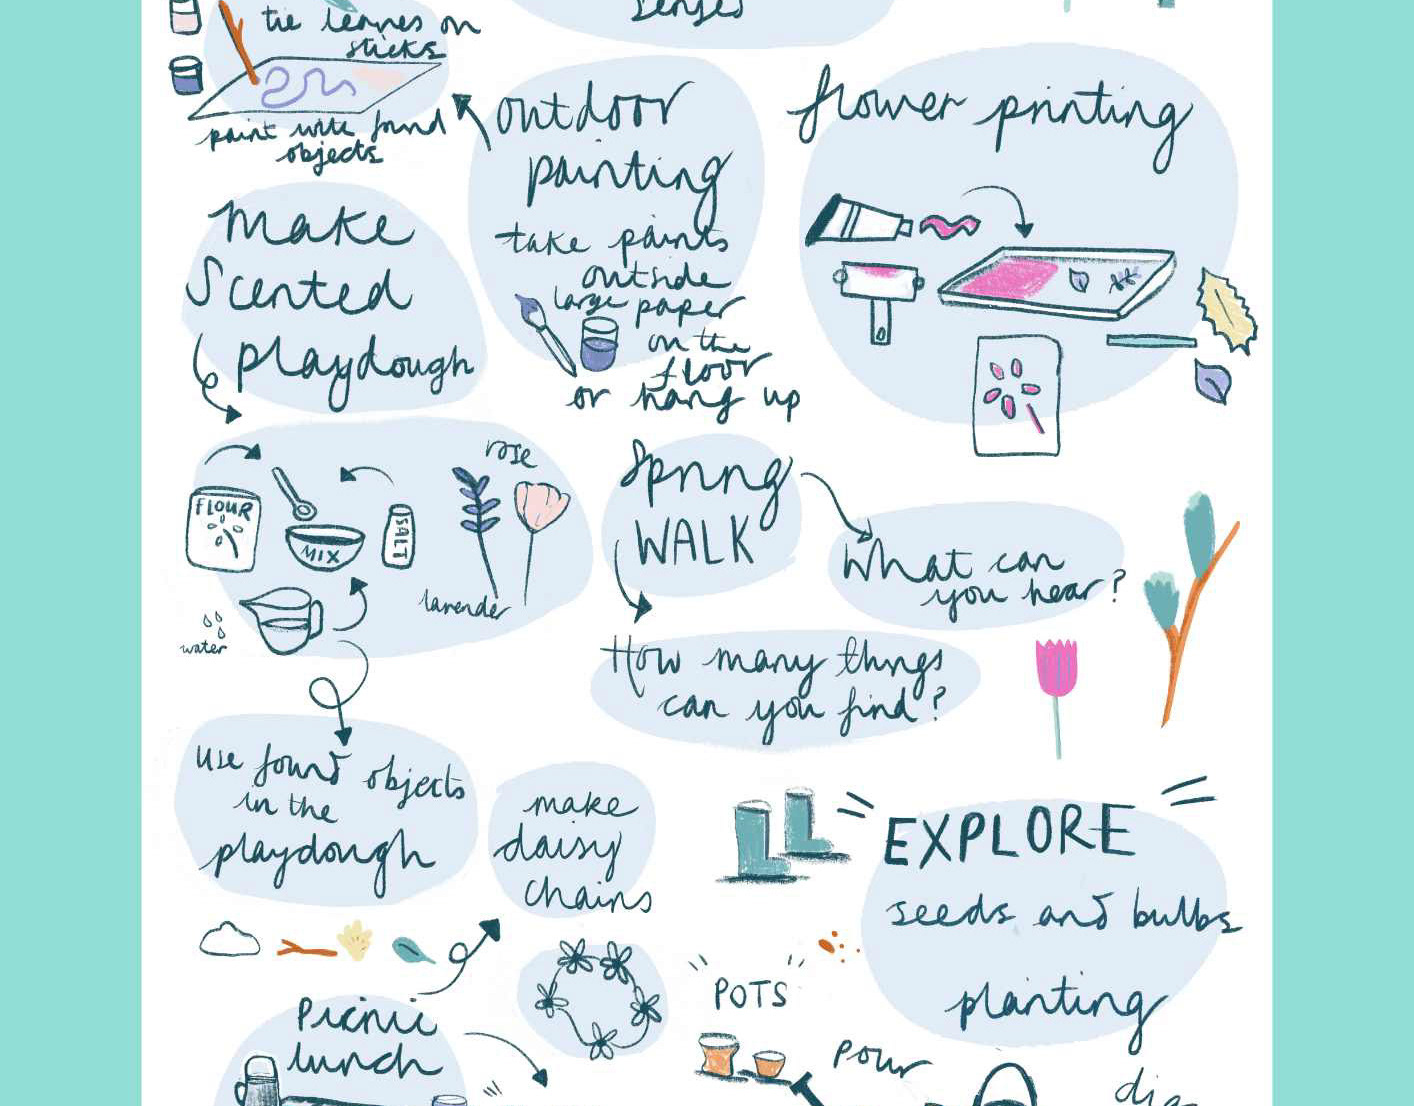 tie leaves on
sticks
senses
paint with found
objects
outdoor
painting
take paints
outside
large paper
on the
floor
or hang up
flower printing
Make
Scented
playdough
FLOUR
MIX
SALT
water
rose
lavender
Spring
WALK
What can
you hear?
How many things
can you find?
use found objects
in the
playdough
make
daisy
chains
EXPLORE
seeds and bulbs
planting
Picnic
lunch
POTS
pour
dig